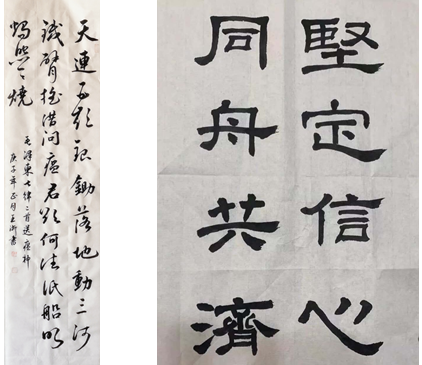 天連五嶺銀鋤落地動三河
鐵臂搖借問瘟君欲何往紙船明
燭照天燒
毛澤東七律二首送瘟神
庚子年正月王書
堅定信心
同舟共濟